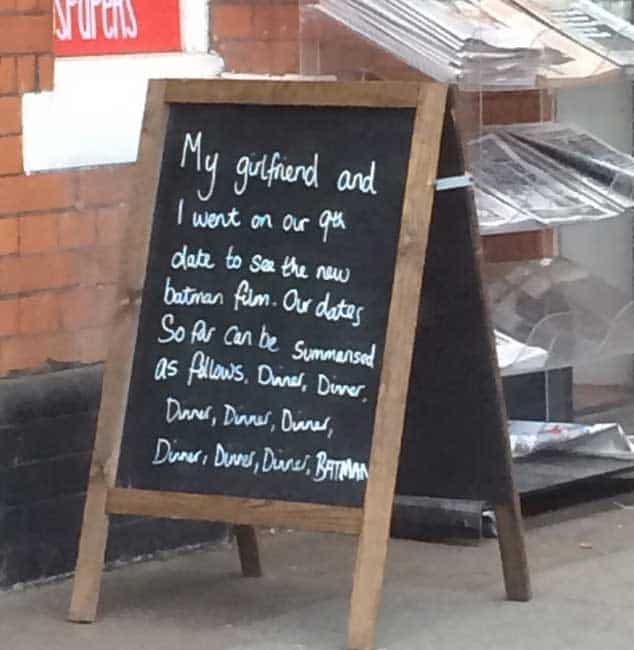 SPAPERS
My girlfriend and
I went on our 9th
date to see the new
batman film. Our dates
So far can be summarised
as follows. Dinner, Dinner,
Dinner, Dinner, Dinner,
Dinner, Dinner, Dinner, BATMAN